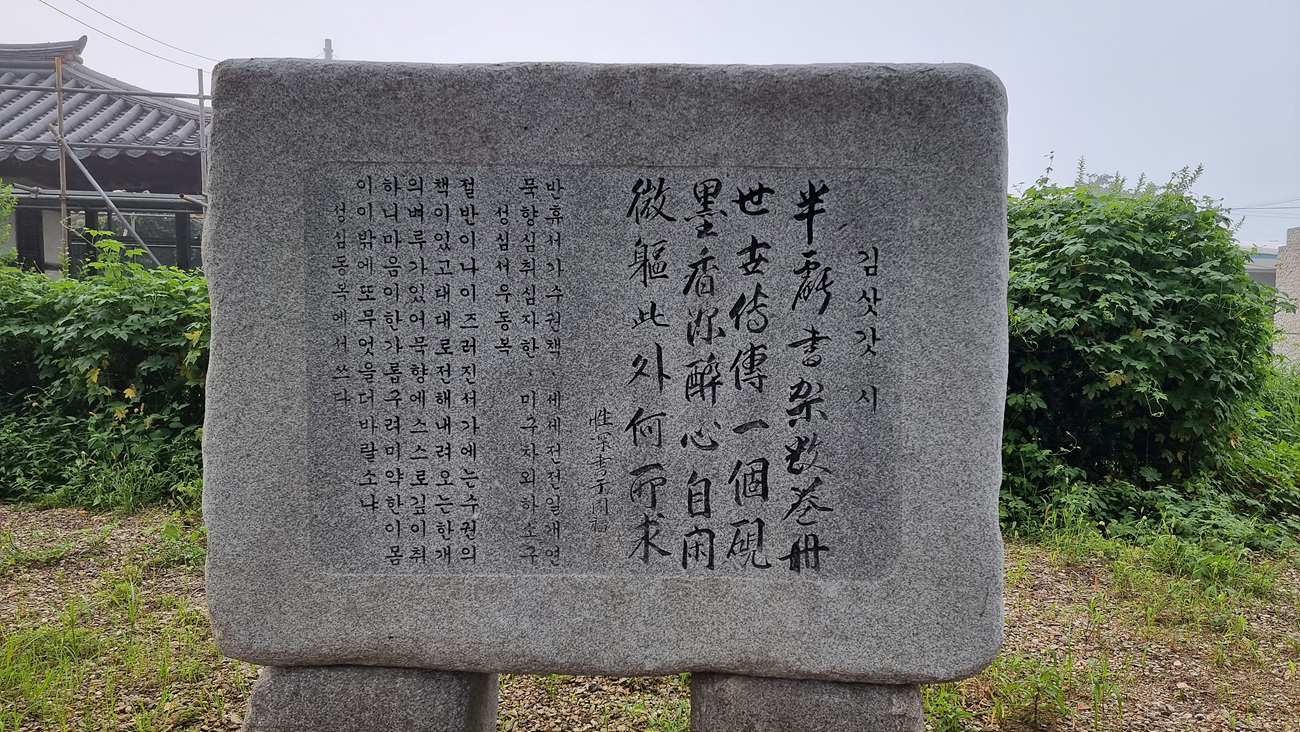 김삿갓 시
半虧書架数卷冊
世世傳傳一個硯
墨香深醉心自閑
微軀此外何所求
性深書于同福
반휴서가수권책· 세세전전일개연
묵향심취심자한· 미구차외하소구
성심서우동복
절반이나이즈러진서가에는수권의
책이있고대대로전해내려오는한개
의벼루가있어묵향에스스로깊이취
하니마음이한가롭구려미약한이몸
이이밖에또무엇을더바랄소냐
성심동복에서 쓰다